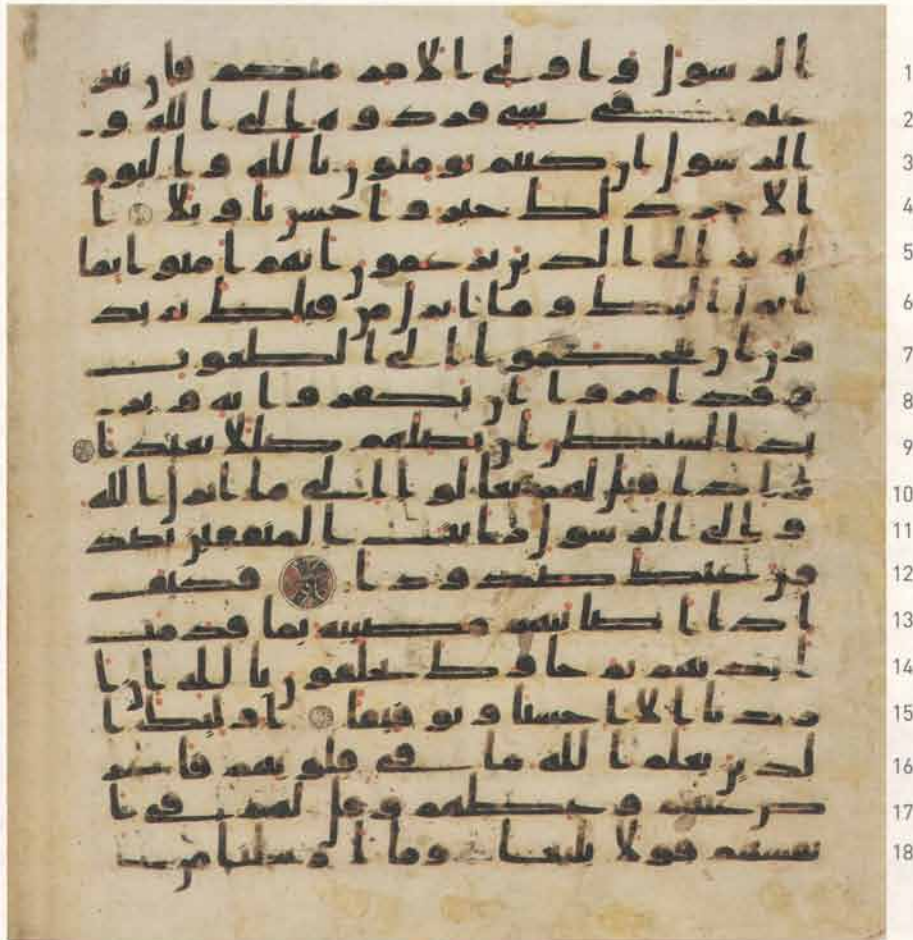 الرسول واولى الامر منكم فان تنـ 1
ـزعتم فى شى فردوه الى الله و 2
الرسول ان كنتم تومنون بالله واليوم 3
الاخر ذلك خير واحسن تاويلا ا 4
لم تر الى الذين يزعمون انهم امنوا بما 5
انزل اليك وما انزل من قبلك يريد 6
ون ان يتحكموا الى الطغوت 7
وقد امروا ان يكفروا به وير 8
يد الشيطن ان يضلهم ضللا بعيدا 9
واذا قيل لهم تعالوا الى ما انزل الله 10
والى الرسول رايت المنفقين يصد 11
ون عنك صدودا فكيف 12
اذا اصابتهم مصيبه بما قدمت 13
ايديهم ثم جاوك يحلفون بالله ان ا 14
ردنا الا احسنا وتوفيقا اوليك ا 15
لذين يعلم الله ما فى قلوبهم فاعر 16
ض عنهم وعظهم وقل لهم فى ا 17
نفسهم قولا بليغا وما ارسلنا من 18